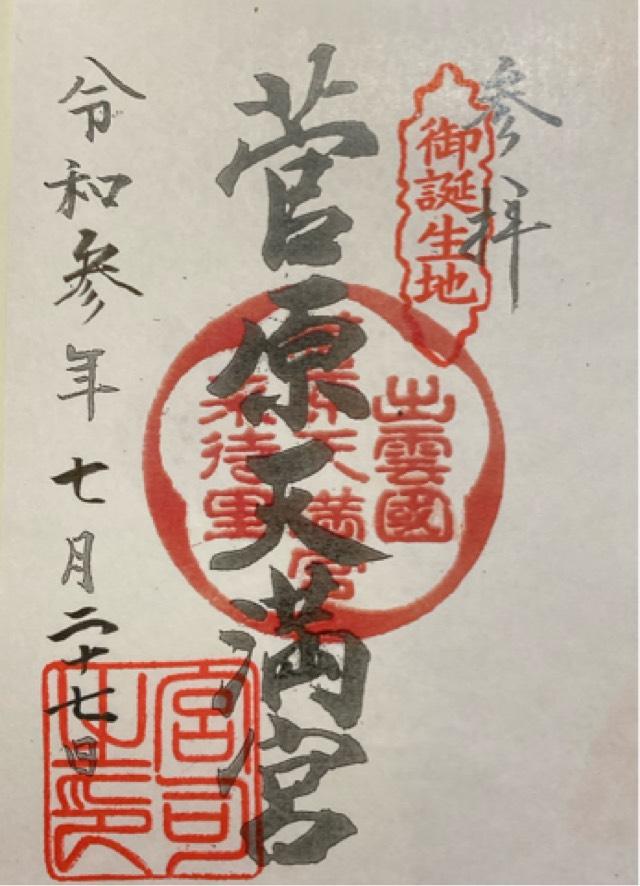 参拝
御誕生地
出雲國
菅原天満宮
来待里
菅原天満宮
令和参年七月二十七日
宮司之印